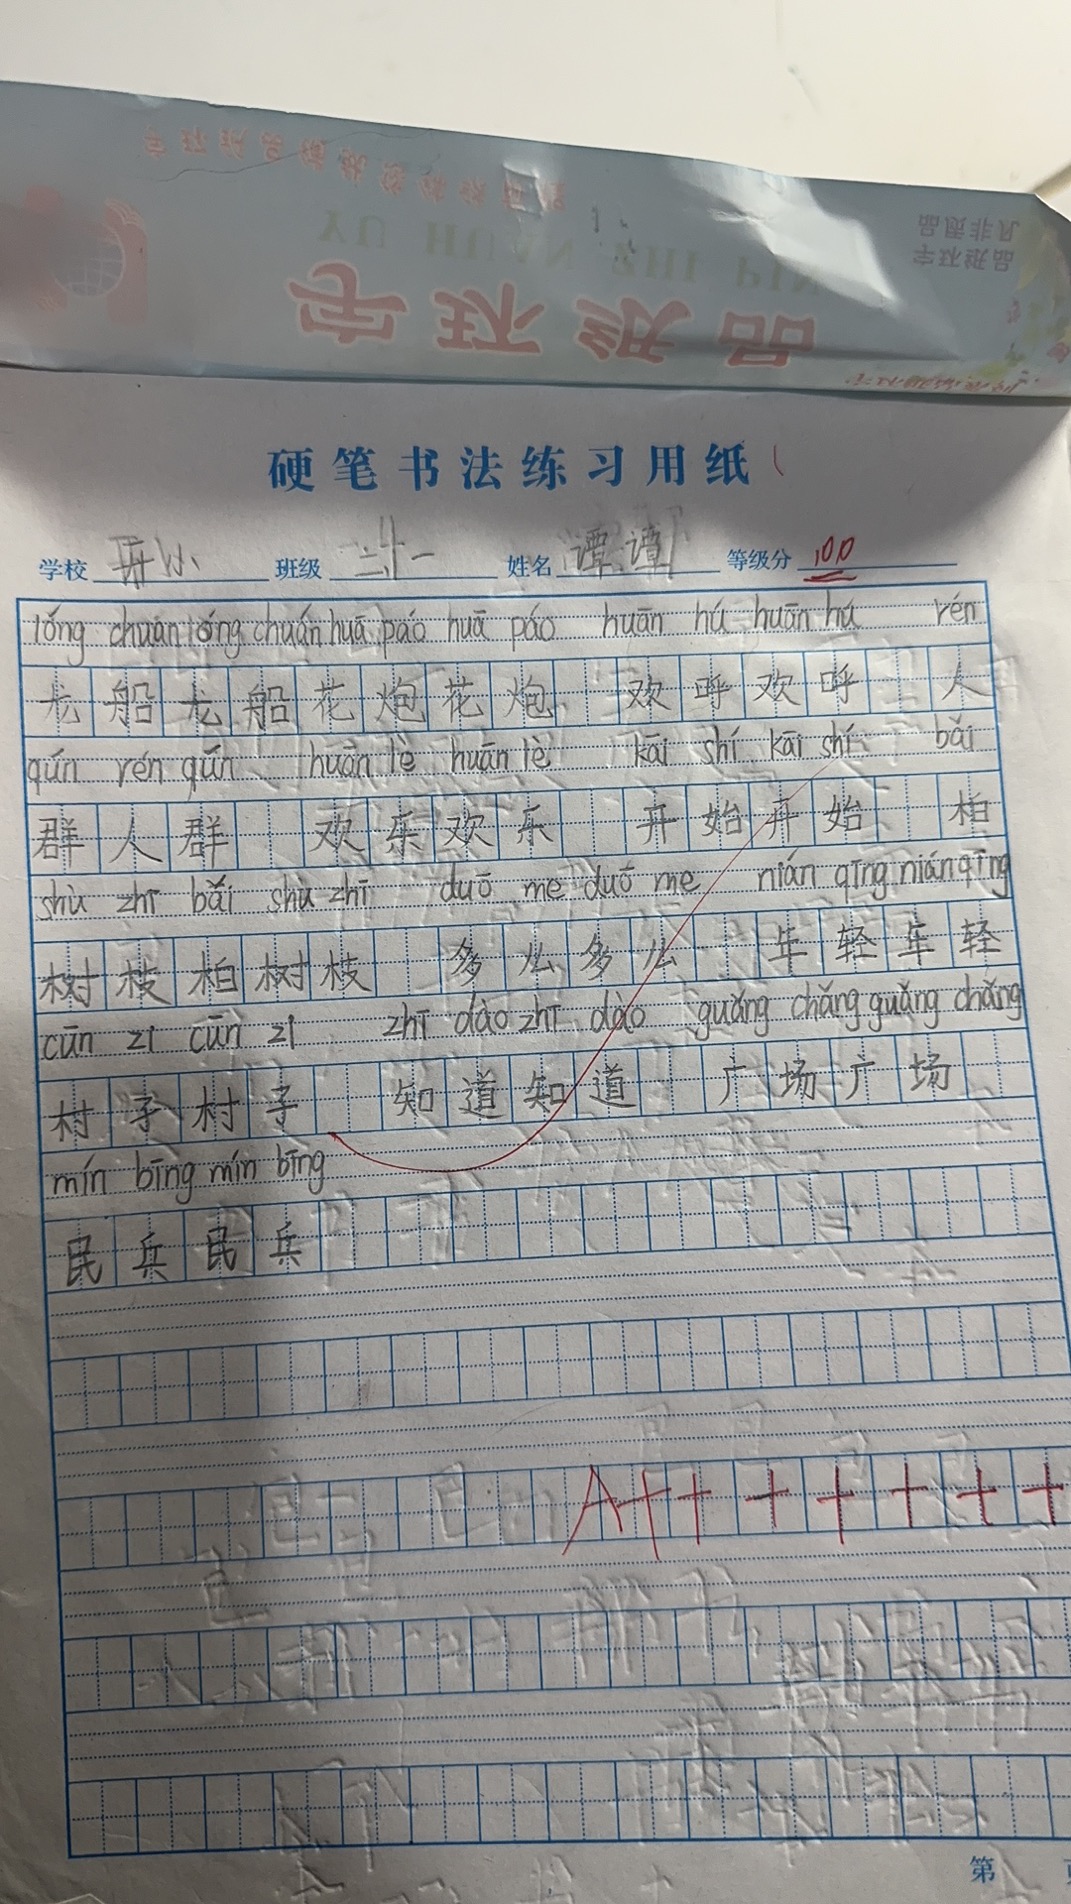 字环纸品
品质非凡
字环纸品
硬笔书法练习用纸
学校 研小 班级 二十一 姓名 谭谭 等级分 100
lóng chuán lóng chuán huā pào huā pào huān hú huān hú rén
龙船龙船花炮花炮 欢呼欢呼 人
qún rén qún huān lè huān lè kāi shí kāi shí bǎi
群人群 欢乐欢乐 开始开始 柏
shù zhī bǎi shù zhī duō me duō me nián qīng nián qīng
树枝柏树枝 多么多么 年轻年轻
cūn zi cūn zi zhī dào zhī dào guǎng chǎng guǎng chǎng
村子村子 知道知道 广场广场
mín bīng mín bīng
民兵民兵
A+++++++
第